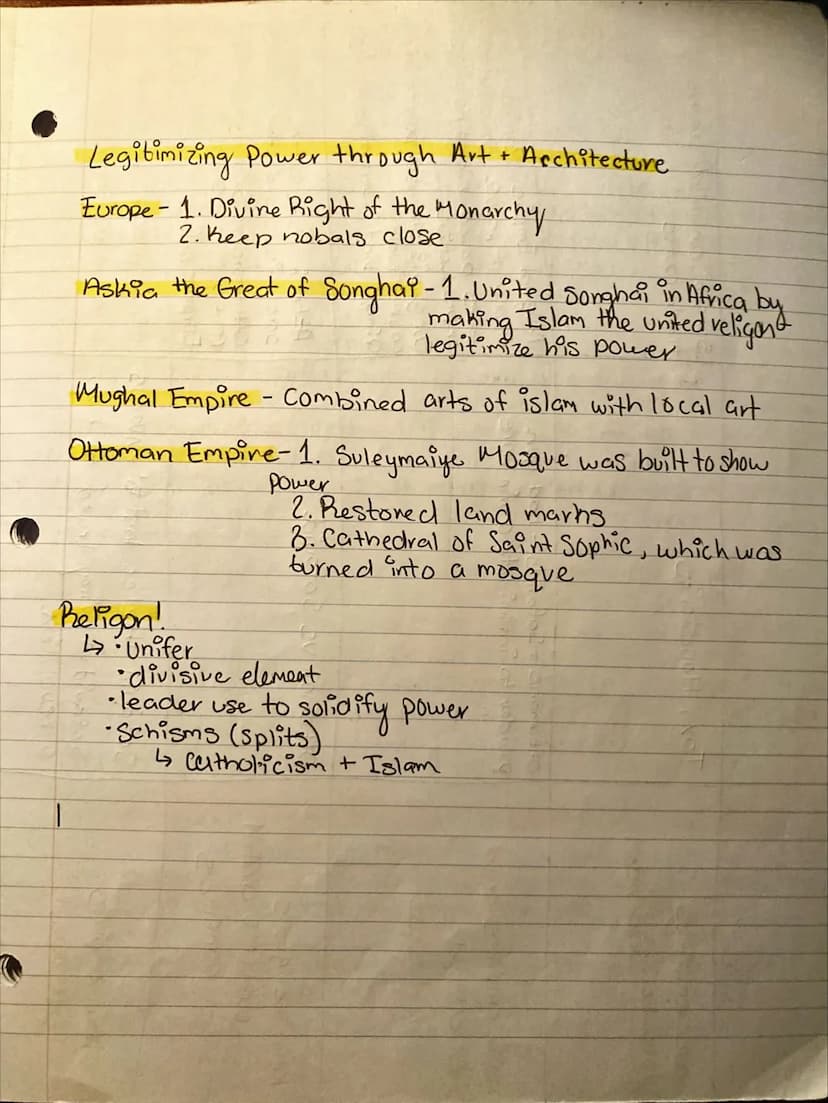 Legitimizing Power through Art + Architecture
Europe - 1. Divine Right of the Monarchy
2. Keep nobals close
Askia the Great of Songhai - 1. United Songhai in Africa by
making Islam the united religon +
legitimize his power
Mughal Empire - Combined arts of islam with local art
Ottoman Empire - 1. Suleymaiye Mosque was built to show
power
2. Restored land marks
3. Cathedral of Saint Sophic, which was
turned into a mosque
Religon!
↳ • unifer
• divisive element
• leader use to solidify power
• Schisms (splits)
↳ Catholicism + Islam